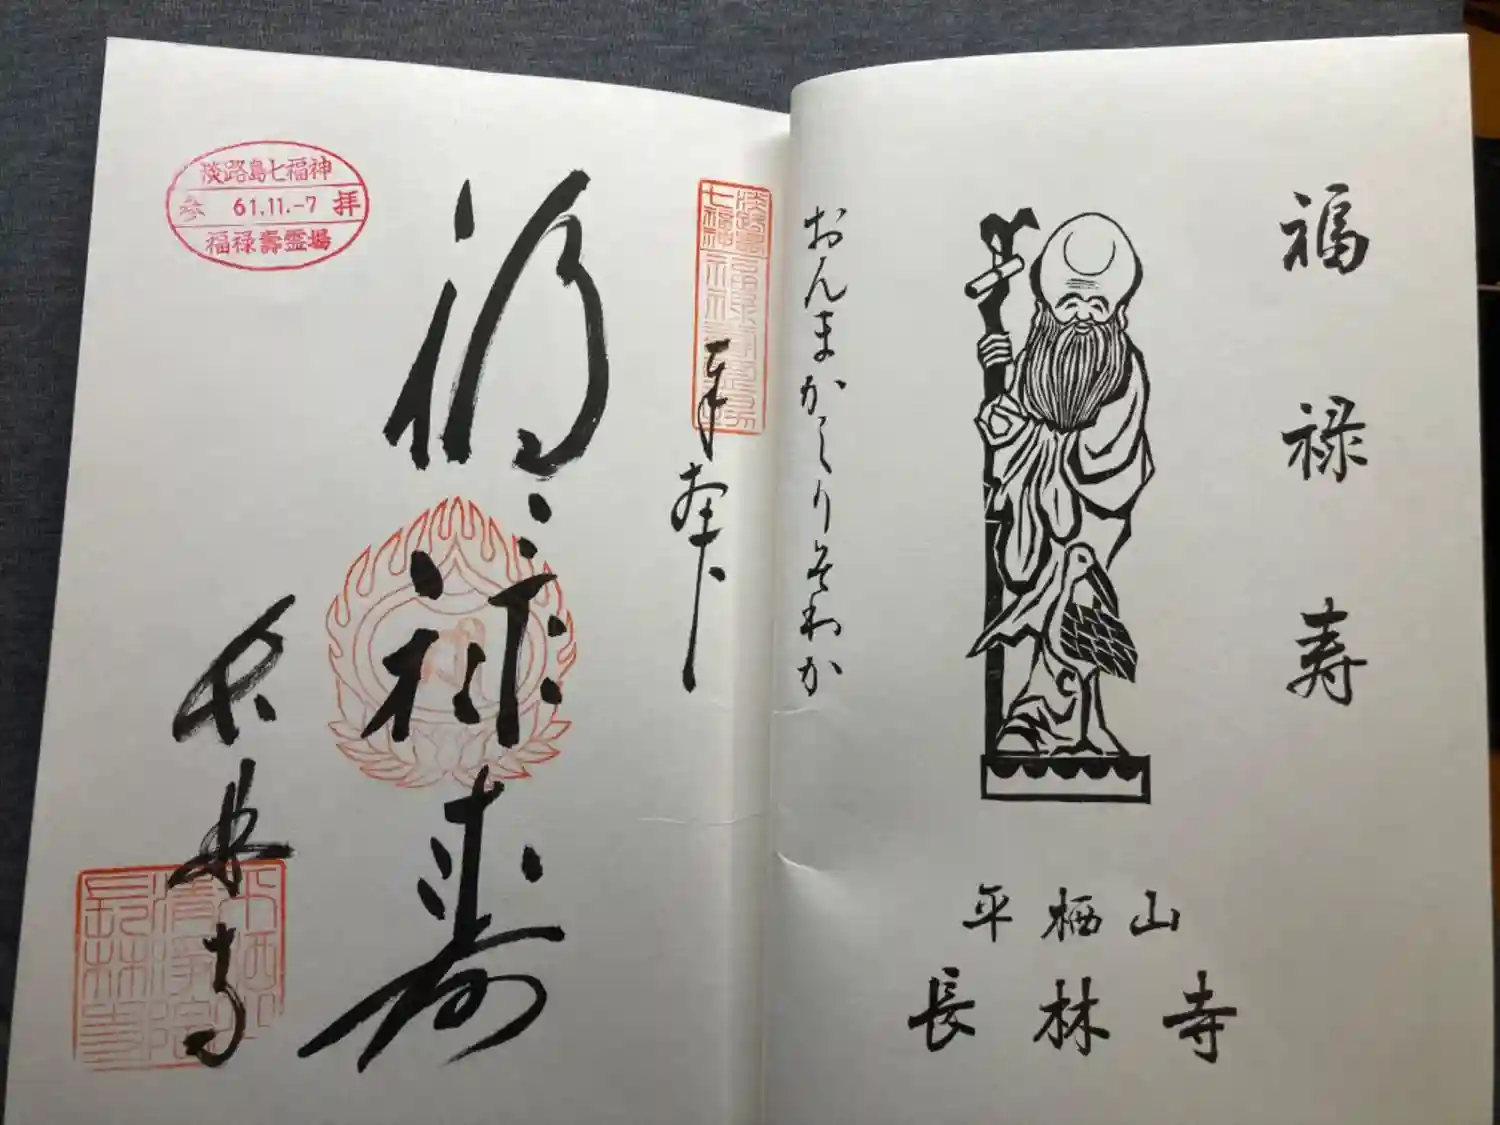 福禄寿
おんまかしりそわか
平栖山
長林寺
淡路島七福神
奉拝
福禄寿
長林寺
淡路島七福神
参 61.11.-7 拝
福禄壽霊場
平栖山
清浄院
長林寺